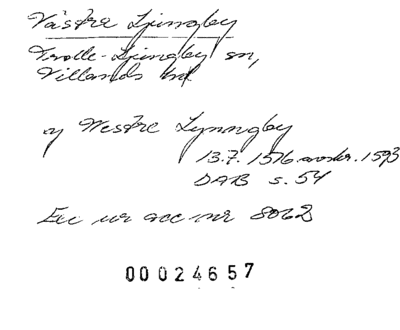 Västra Ljungby
Trolle-Ljungby sn,
Villands hd
y Westre Lynngby
13.7. 1576 avskr. 1593
DAB s. 54
Exc ur acc nr 8062
00024657